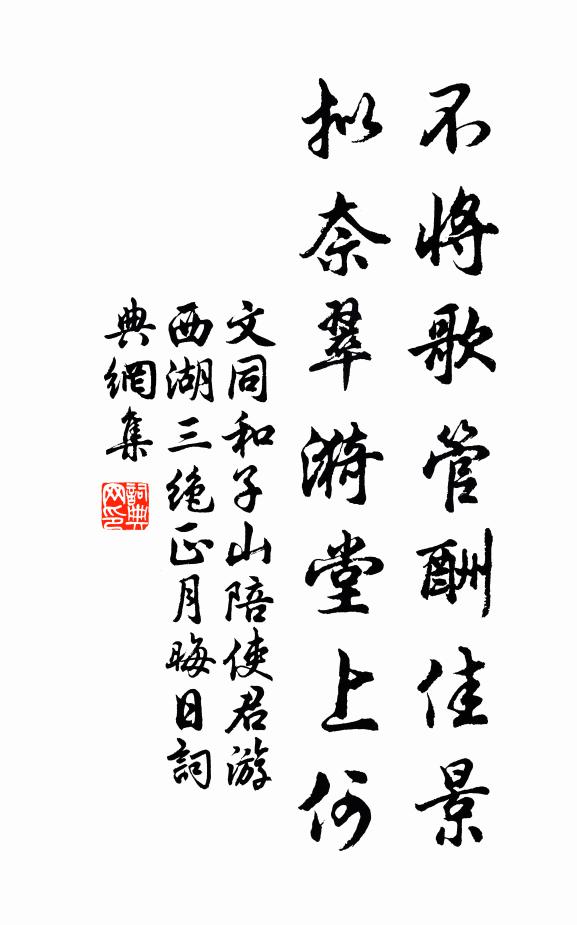 不將歌管酬佳景
拟奈翠漪堂上何
文同和子山陪使君游
西湖三绝正月晦日詞
典網集
詞典网印